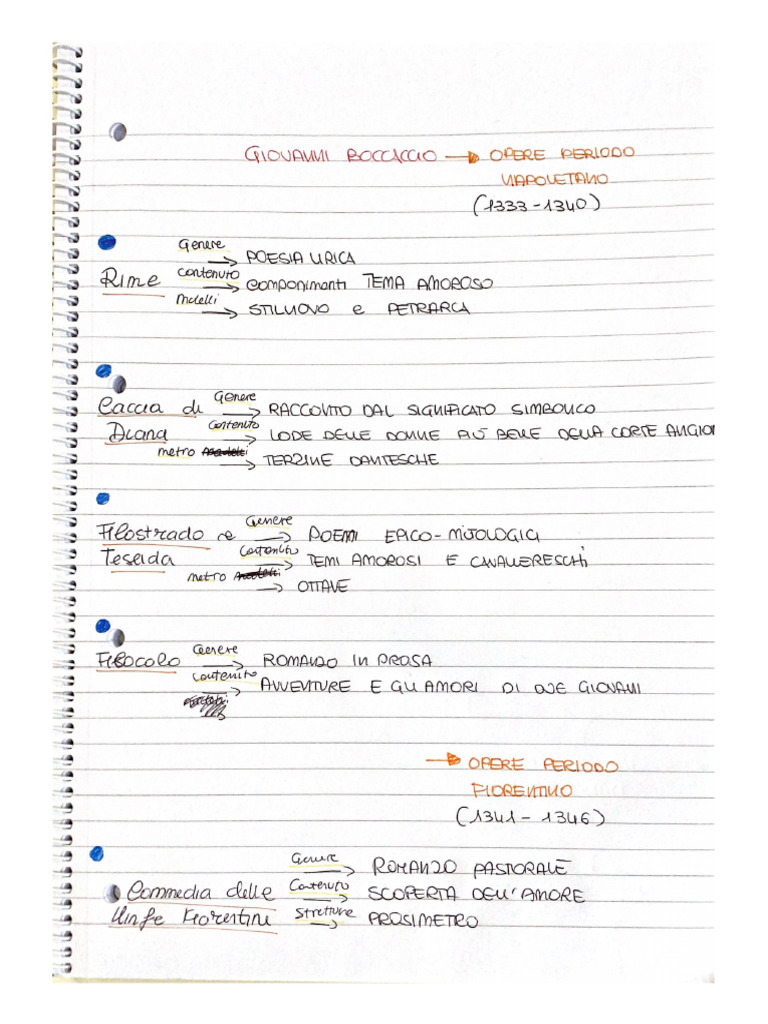 GIOVANNI BOCCACCIO → OPERE PERIODO
NAPOLETANO
(1333-1340)
Genere
→ POESIA LIRICA
Rime contenuto → componimenti TEMA AMOROSO
Modelli → STILNOVO e PETRARCA
Caccia di Genere → RACCONTO DAL SIGNIFICATO SIMBOLICO
Diana contenuto → LODE DELLE DONNE PIÙ BELLE DELLA CORTE ANGIO
metro → TERZINE DANTESCHE
Filostrado e Genere → POEMI EPICO-MITOLOGICI
Teseida Contenuto → TEMI AMOROSI E CAVALLERESCHI
metro → OTTAVE
Filocolo Genere → ROMANZO IN PROSA
contenuto → AVVENTURE E GLI AMORI DI DUE GIOVANI
→ OPERE PERIODO
FIORENTINO
(1341-1346)
Genere → ROMANZO PASTORALE
Commedia delle Contenuto → SCOPERTA DELL'AMORE
Ninfe Fiorentine Strutture → PROSIMETRO